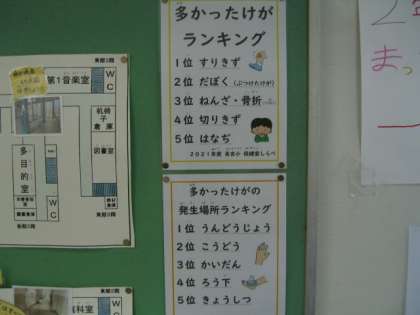 東館3階
第1音楽室
W
C
机椅子
倉庫
図書室
多目的室
W
C
東館2階
東館2階
W
C
多かったけが
ランキング
1位 すりきず
2位 だぼく (ぶつけたけが)
3位 ねんざ・骨折
4位 切りきず
5位 はなぢ
多かったけがの
発生場所ランキング
1位 うんどうじょう
2位 こうどう
3位 かいだん
4位 ろう下
5位 きょうしつ
まっ